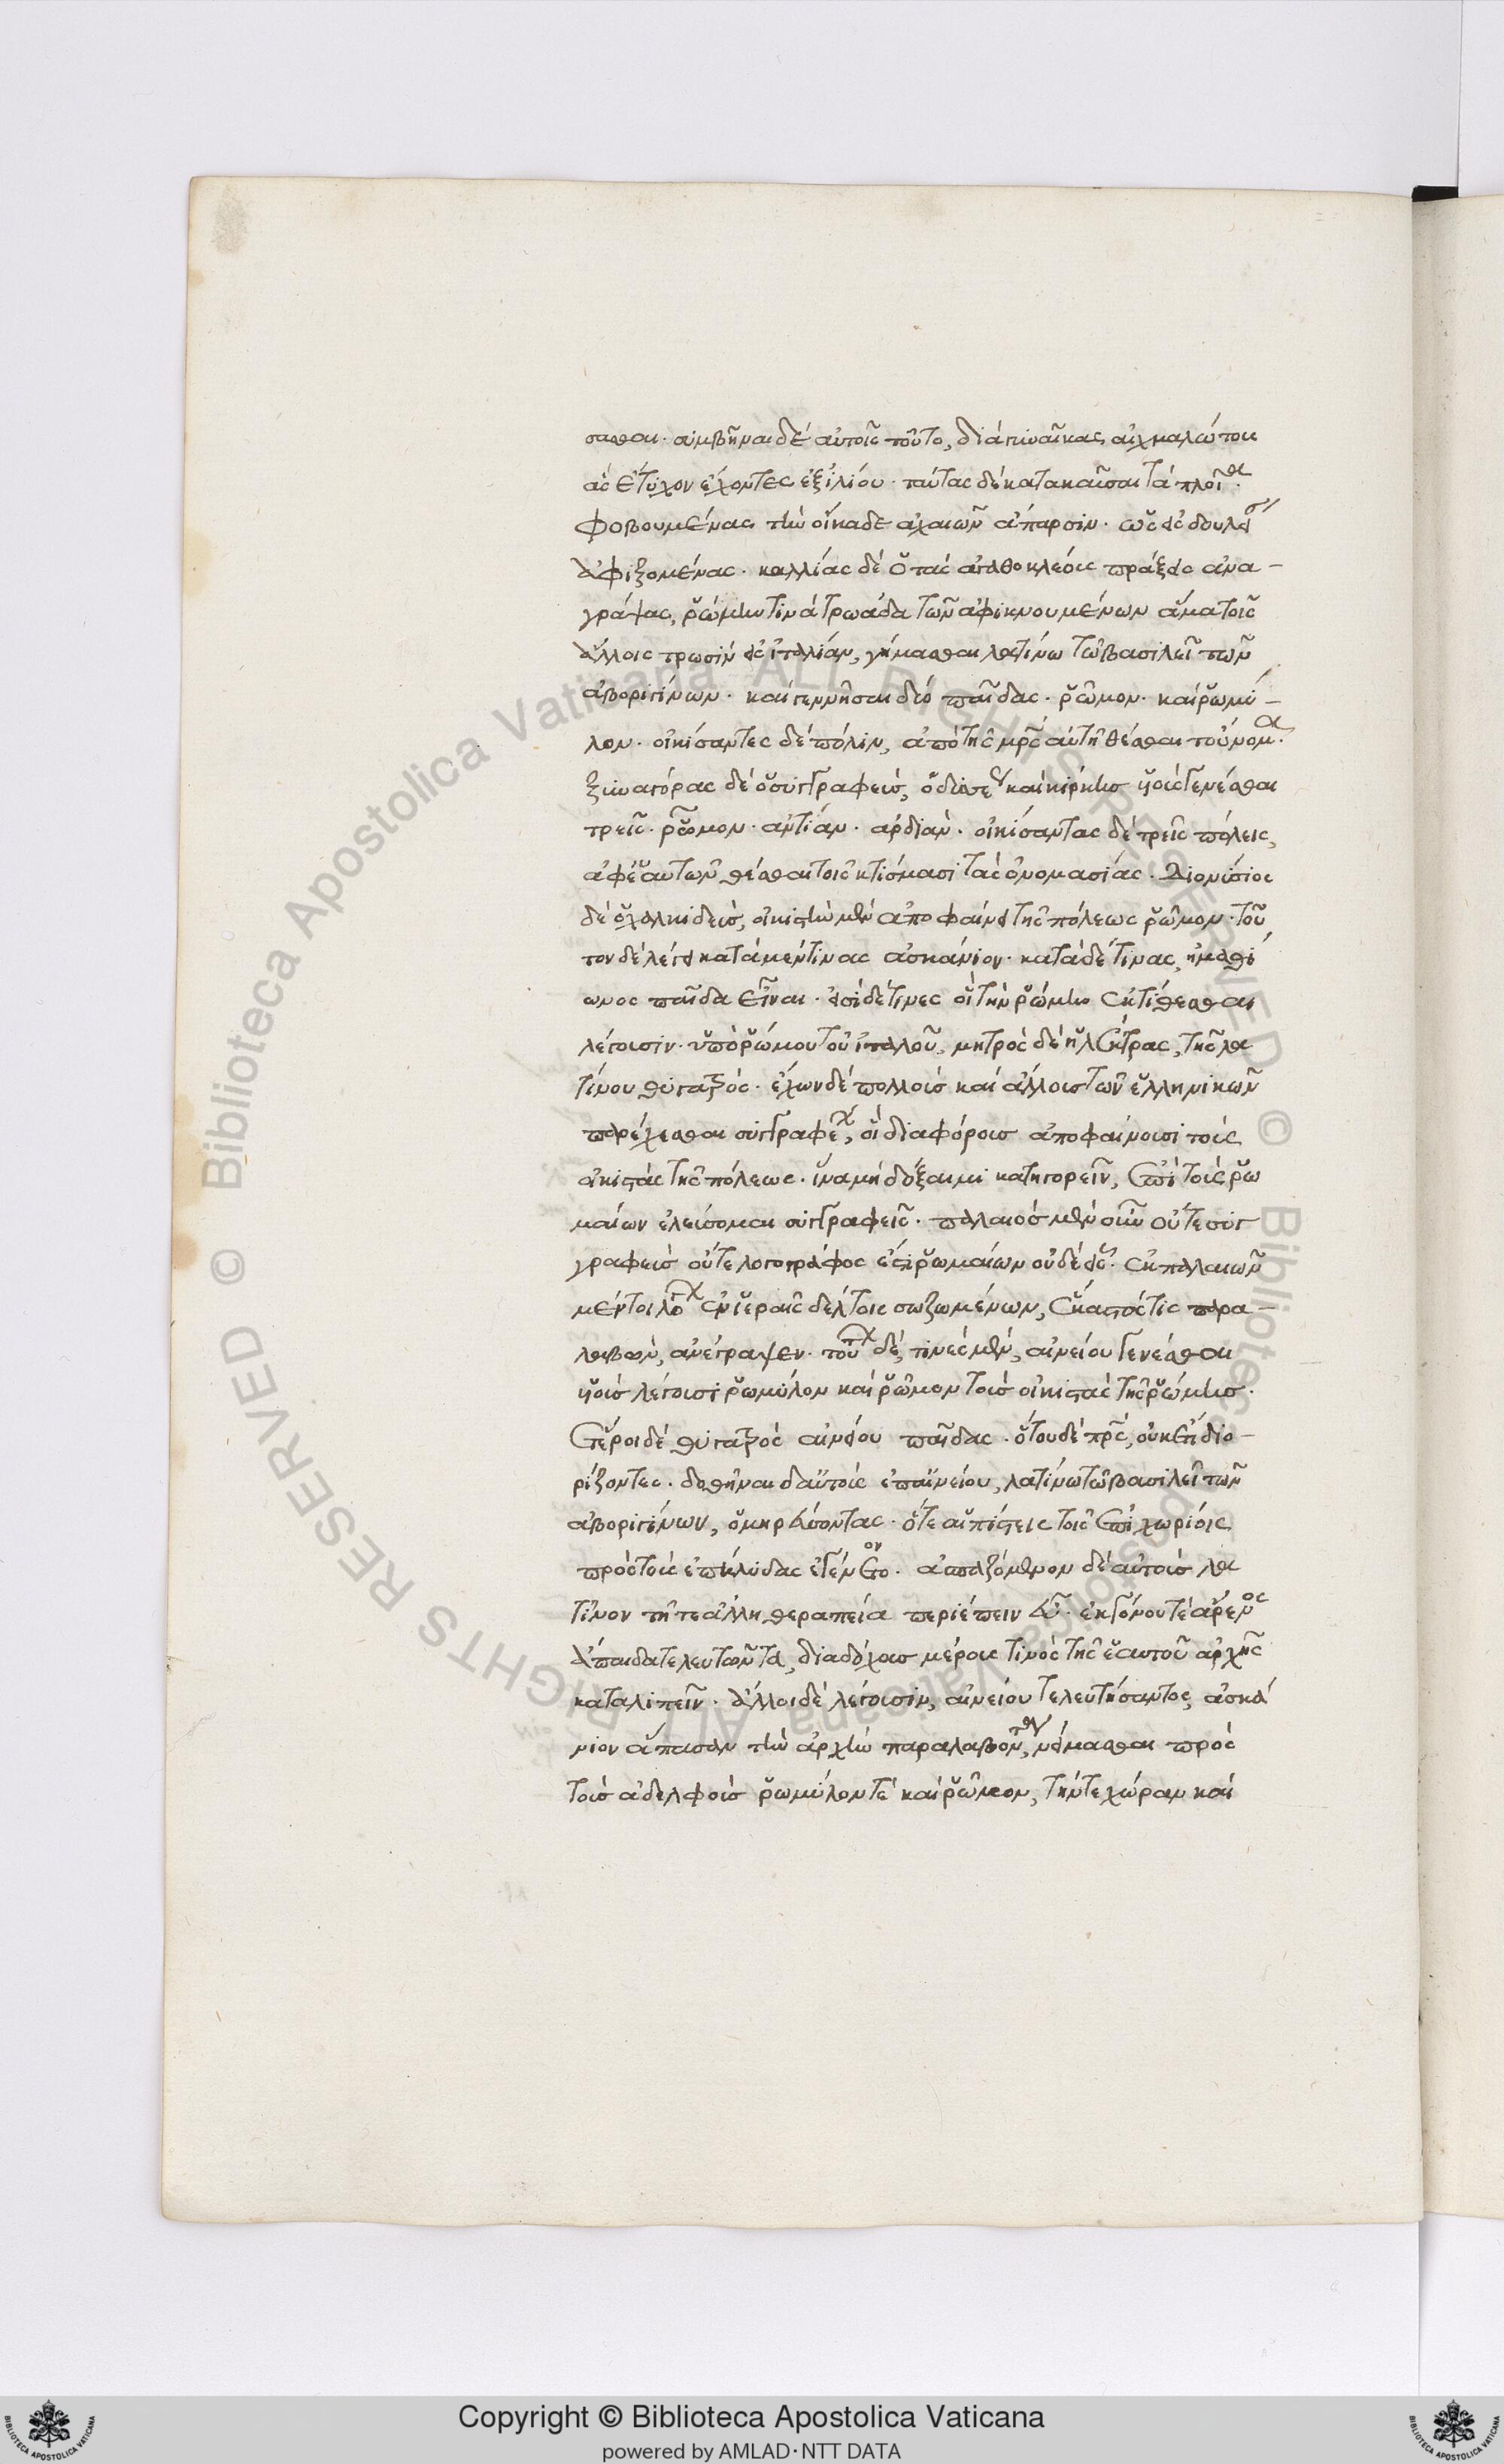 σασθαι· συμβῆναι δὲ αὐτοῖς τοῦτο, διὰ γυναῖκας αἰχμαλώτους
ἃς ἔτυχον ἔχοντες ἐξ ἰλίου· ταύτας δὲ κατακαῦσαι τὰ πλοῖα·
φοβουμένας τὴν οἴκαδε ἀχαιῶν ἄπαρσιν· ὡς εἰς δουλείαν
ἀφιξομένας· καλλίας δὲ ὁ τὰς ἀγαθοκλέους πράξεις ἀνα-
γράψας, ῥώμην τινὰ τρωάδα τῶν ἀφικνουμένων ἅμα τοῖς
ἄλλοις τρωσὶν εἰς ἰταλίαν, γήμασθαι λατίνω τῶ βασιλεῖ τῶν
ἀβοριγίνων· καὶ γεννῆσαι δύο παῖδας· ῥῶμον· καὶ ῥωμύ-
λον· οἰκίσαντες δὲ πόλιν, ἀπὸ τῆς μητρὸς αὐτῆ θέσθαι τοὔνομα·
ξεναγόρας δὲ ὁ συγγραφεὺς, ὀδυσσέως καὶ κίρκης υἱοὺς γενέσθαι
τρεῖς· ῥῶμον· ἀντίαν· ἀρδίαν· οἰκίσαντας δὲ τρεῖς πόλεις,
ἀφ' ἑαυτῶν θέσθαι τοῖς κτίσμασι τὰς ὀνομασίας· Διονύσιος
δὲ ὁ χαλκιδεὺς, οἰκιστὴν μὲν ἀποφαίνει τῆς πόλεως ῥῶμον· τοῦ
τον δὲ λέγει κατὰ μέν τινας ἀσκανίου· κατὰ δέ τινας, ἠμαθί
ωνος παῖδα εἶναι· εἰσὶ δέ τινες οἳ τὴν ῥώμην ἐκτίσθαι
λέγουσιν· ὑπὸ ῥώμου τοῦ ἰταλοῦ, μητρὸς δὲ ἠλέκτρας, τῆς λα
τίνου θυγατρός· ἔχων δὲ πολλοὺς καὶ ἄλλους τῶν ἑλληνικῶν
παρέχεσθαι συγγραφεῖς, οἳ διαφόρους ἀποφαίνουσι τοὺς
οἰκιστὰς τῆς πόλεως· ἵνα μὴ δόξαιμι κατηγορεῖν, ἐπὶ τοὺς ῥω
μαίων ἐλεύσομαι συγγραφεῖς· παλαιὸς μὲν οὖν οὔτε συγ
γραφεὺς οὔτε λογογράφος ἐστὶ ῥωμαίων οὐδὲ εἷς· ἐκ παλαιῶν
μέντοι λόγων ἐν ἱεραῖς δέλτοις σωζομένων, ἕκαστός τις παρα-
λαβὼν, ἀνέγραψεν· τούτων δὲ, τινὲς μὲν, αἰνείου γενέσθαι
υἱοὺς λέγουσι ῥωμύλον καὶ ῥῶμον τοὺς οἰκιστὰς τῆς ῥώμης·
ἕτεροι δὲ θυγατρὸς αἰνείου παῖδας· ὅτου δὲ πατρὸς, οὐκέτι διο-
ρίζοντες· δοθῆναι δ' αὐτοὺς ἐπ' αἰνείου, λατίνω τῶ βασιλεῖ τῶν
ἀβοριγίνων, ὁμηρεύοντας· ὅτε αἱ πίστεις τοῖς ἐπιχωρίοις
πρὸς τοὺς ἐπήλυδας ἐγένοντο· ἀσπαζόμενον δὲ αὐτοὺς λα
τῖνον τῆ τε ἄλλη θεραπεία περιέπειν εὖ· ἐκγόνου τὲ ἄρρενος
ἄπαιδα τελευτῶντα, διαδόχους μέρους τινὸς τῆς ἑαυτοῦ ἀρχῆς
καταλιπεῖν· ἄλλοι δὲ λέγουσιν, αἰνείου τελευτήσαντος, ἀσκά
νιον ἅπασαν τὴν ἀρχὴν παραλαβόντα, νείμασθαι πρὸς
τοὺς ἀδελφοὺς ῥωμύλον τὲ καὶ ῥῶμον, τήν τε χώραν καὶ
Copyright © Biblioteca Apostolica Vaticana
powered by AMLAD·NTT DATA